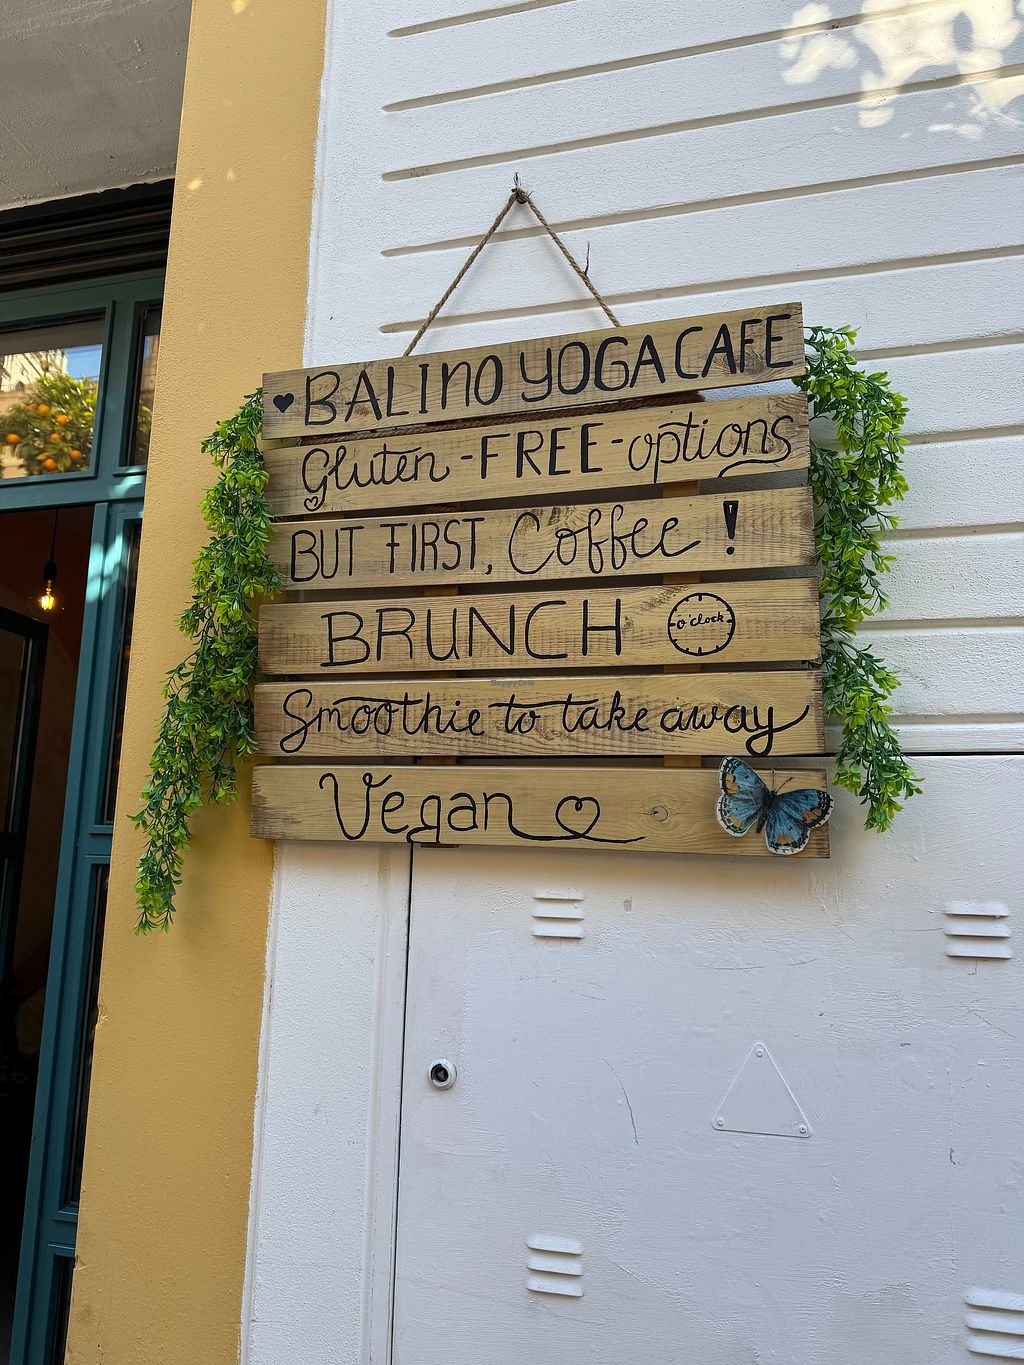 BALINO YOGA CAFE
Gluten-FREE-options
BUT FIRST, Coffee!
BRUNCH o'clock
HappyCow
Smoothie to take away
Vegan